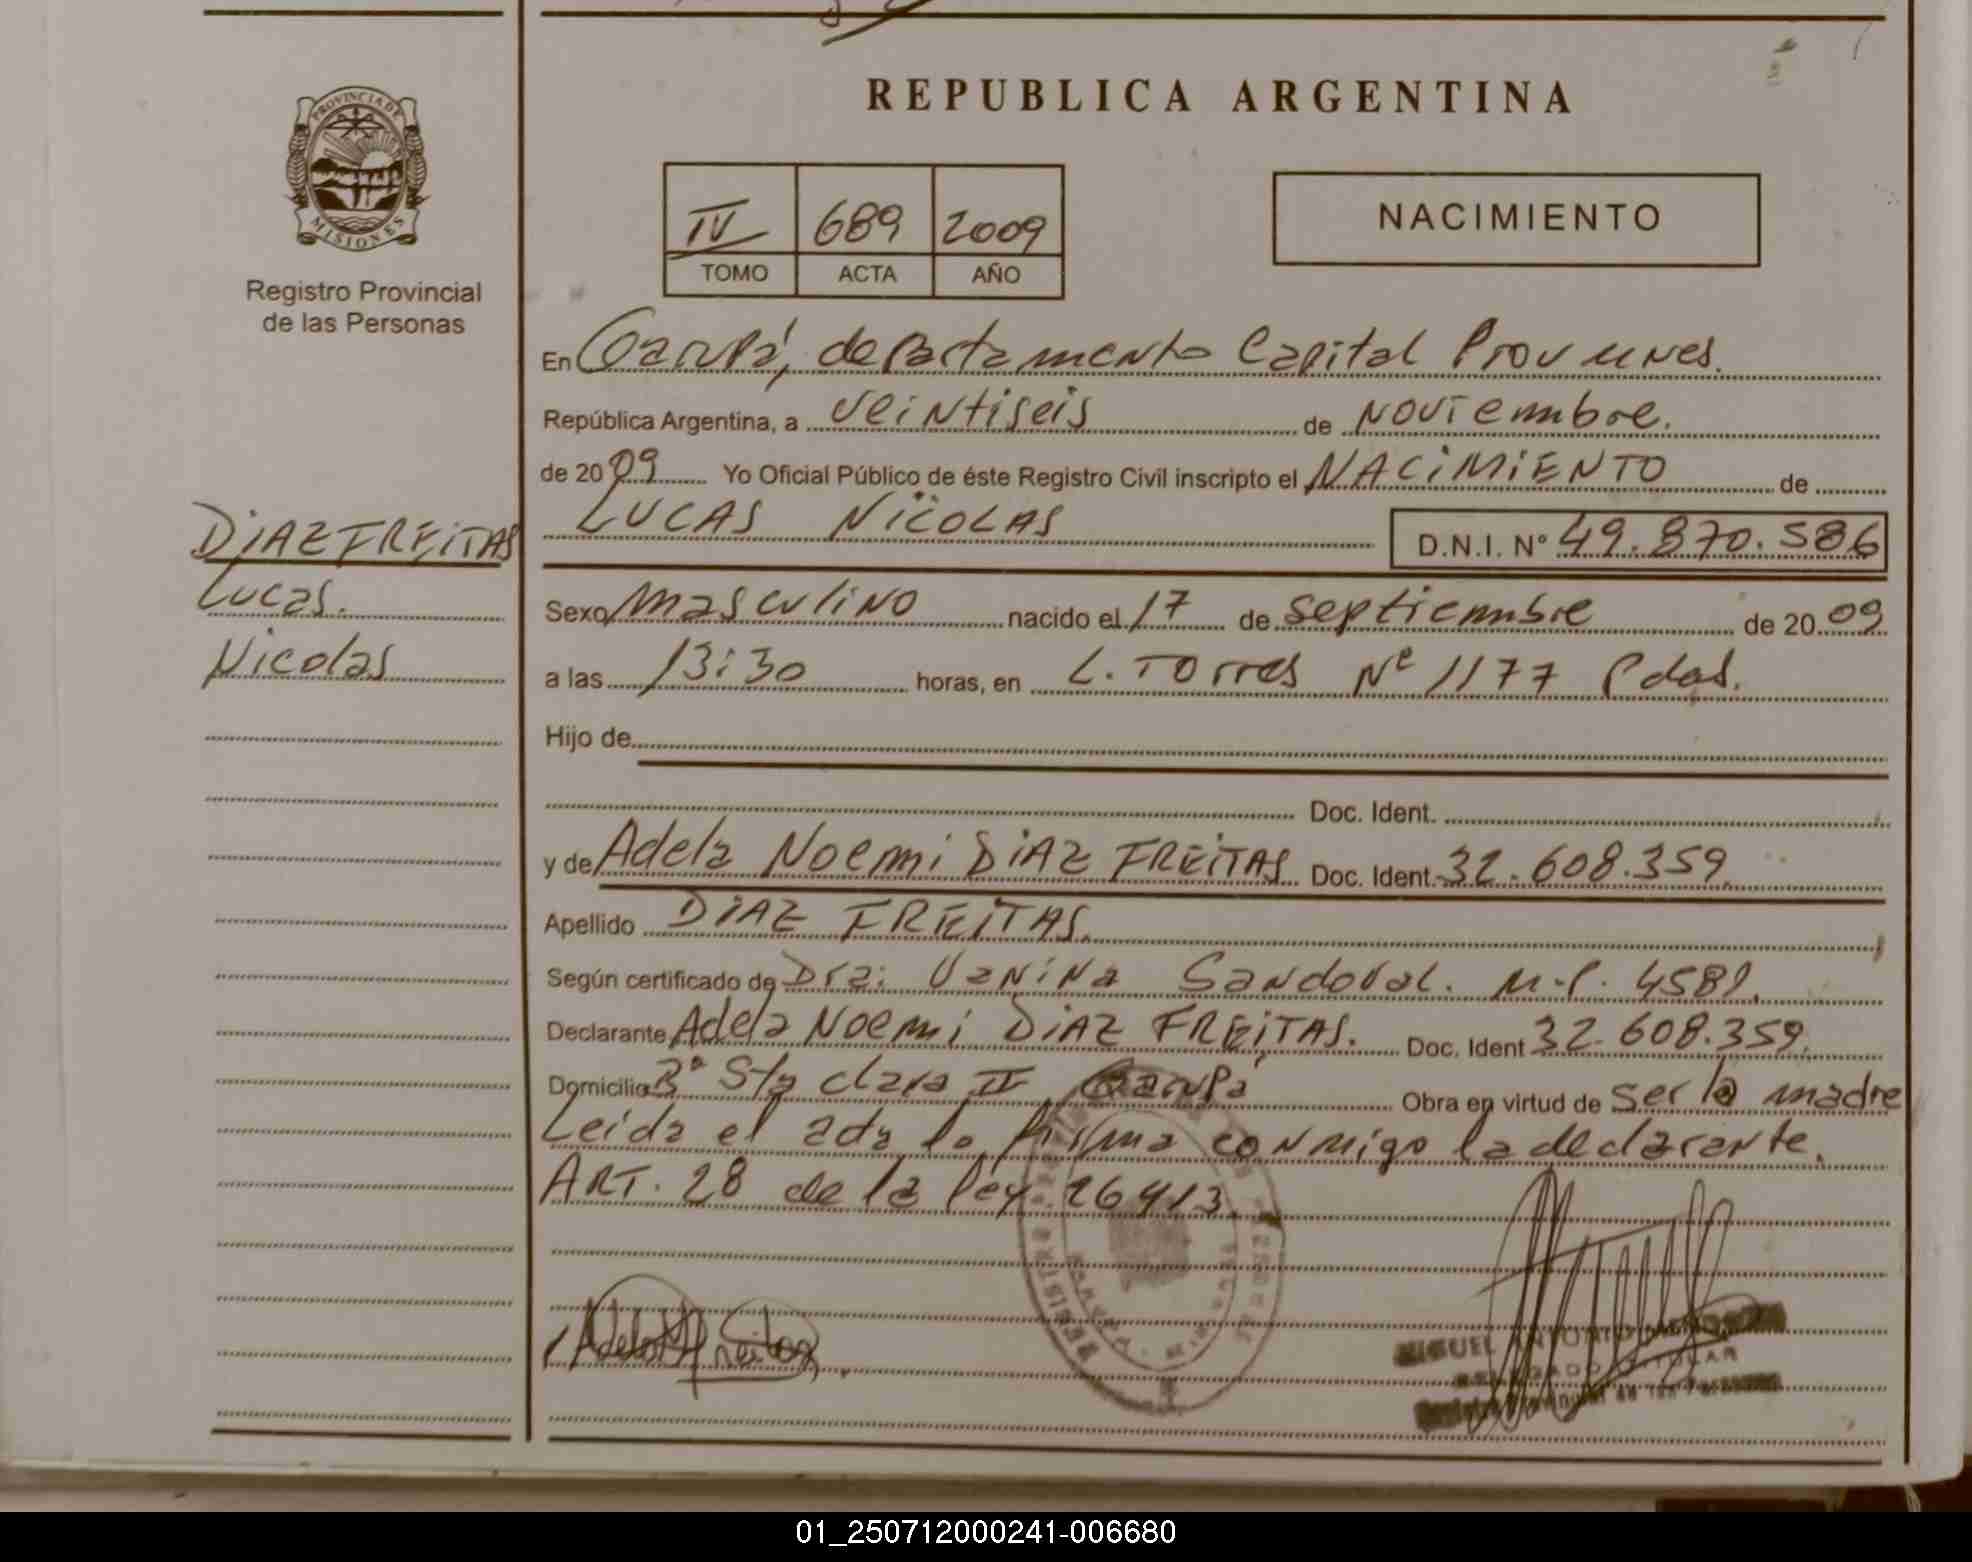 REPUBLICA ARGENTINA
PROVINCIA DE
MISIONES
Registro Provincial
de las Personas
IV 689 2009
TOMO ACTA AÑO
NACIMIENTO
En Garupá, departamento Capital Prov
República Argentina, a veintiseis de noviembre.
de 2009 Yo Oficial Público de éste Registro Civil inscripto el NACIMIENTO de
LUCAS NICOLAS D.N.I. N° 49.870.586
DIAZ FREITAS
Lucas.
Nicolas
Sexo masculino nacido el 17 de septiembre de 2009
a las 13:30 horas, en L. Torres Nº 1177 Pdas.
Hijo de
Doc. Ident.
y de Adela Noemi DIAZ FREITAS Doc. Ident. 32.608.359
Apellido DIAZ FREITAS.
Según certificado de Dra: Vanina Sandoval. M.P. 4581.
Declarante Adela Noemi DIAZ FREITAS. Doc. Ident 32.608.359.
Domicilio Bº Sta clara IV Garupá Obra en virtud de ser la madre
Leida el acta la firma conmigo la declarante.
ART. 28 de la ley 26413.
MIGUEL ANTONIO
DELEGADO TITULAR
Registro Provincial de las Personas
01_250712000241-006680